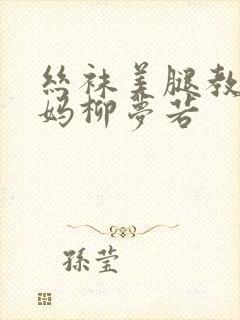 丝袜美腿教
妈柳夢若
孫莹